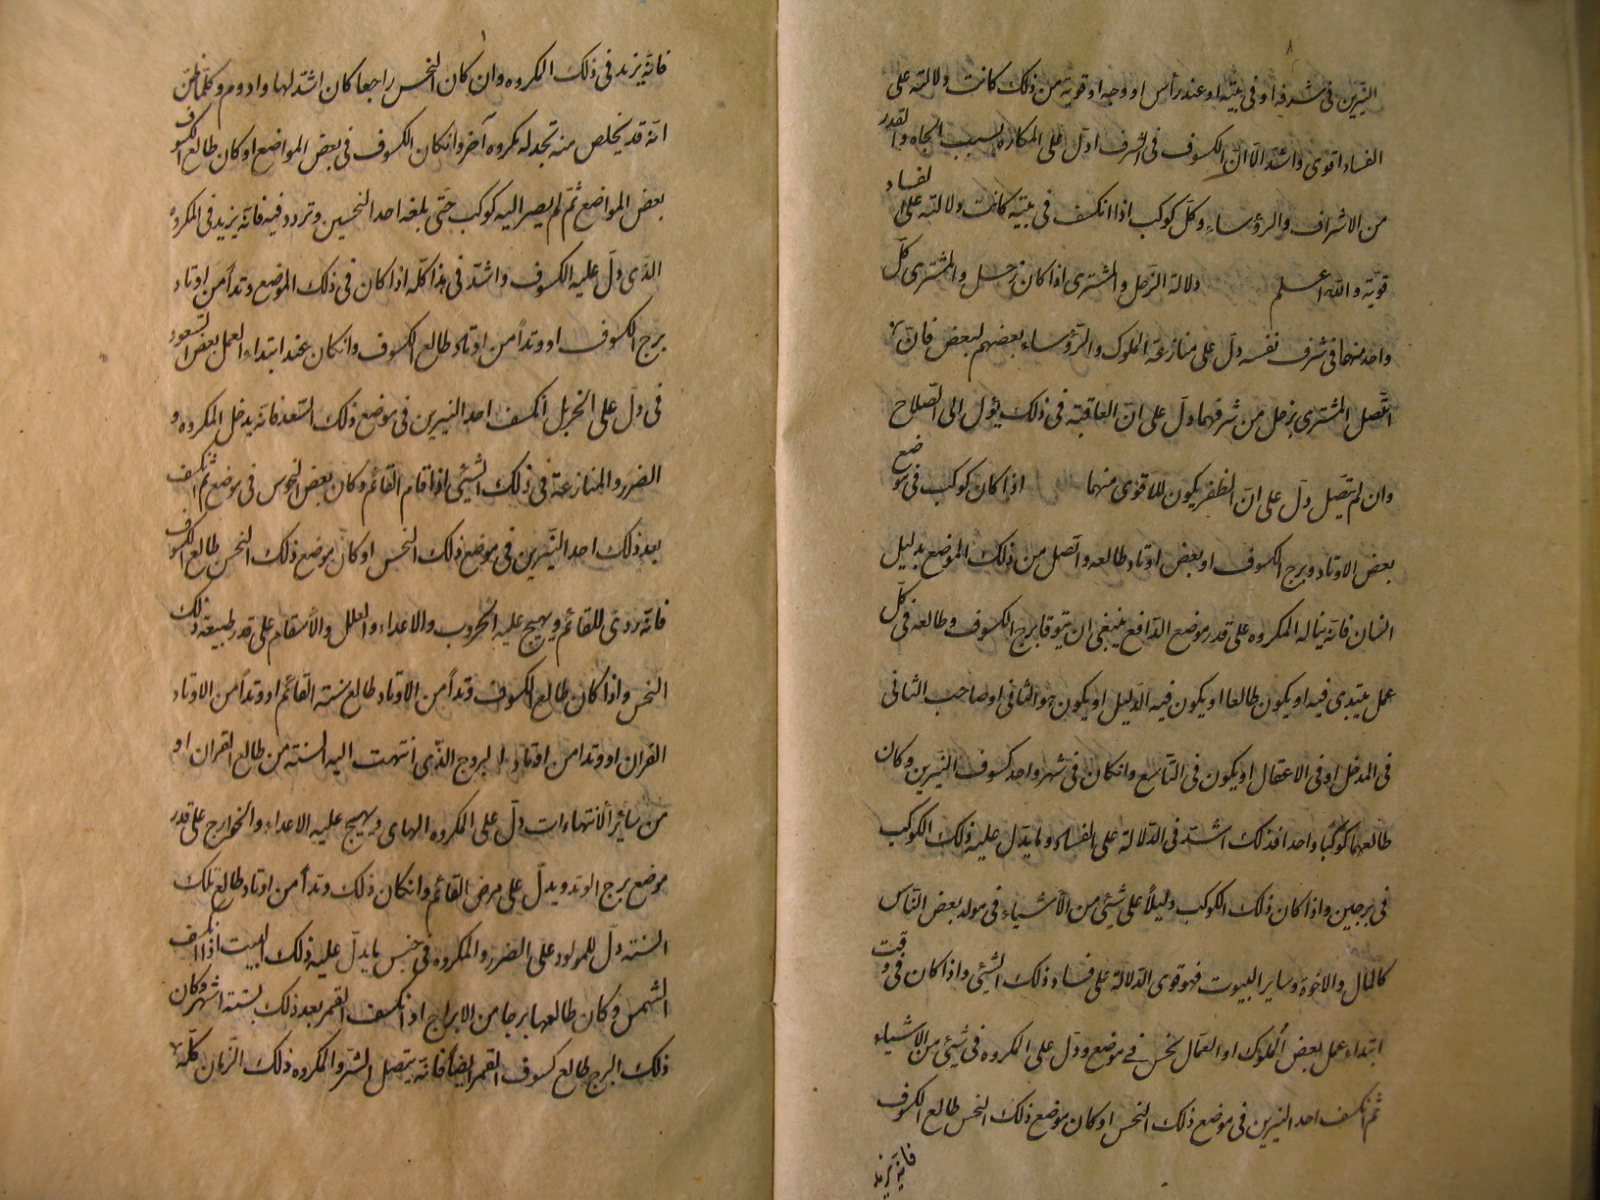 النيرين فى شرفه او فى بيته او عند رأس او وجه او قوته من ذلك كانت دلالته على
الفساد اقوى واشد الا ان الكسوف فى الشرف ادل على المكاره بسبب الجاه والقدر
من الاشراف والرؤساء وكل كوكب اذا انكسف فى بيته كانت دلالته على الفساد
قوية والله اعلم دلالة الزحل والمشترى اذا كان زحل والمشترى كل
واحد منهما فى شرف نفسه دل على منازعة الملوك والرؤساء بعضهم لبعض فان
اتصل المشترى بزحل من شرفهما دل على ان العاقبة فى ذلك يؤل الى الصلاح
وان لم يتصل دل على ان الظفر يكون للاقوى منهما اذا كان كوكب فى موضع
بعض الاوتاد وبرج الكسوف او بعض اوتاد طالعه واتصل من ذلك الموضع بدليل
انسان فانه يناله المكروه على قدر موضع الدافع ينبغى ان يتوقا برج الكسوف وطالعه فى كل
عمل يبتدى فيه او يكون طالعا او يكون فيه الدليل او يكون هو الثانى او صاحب الثانى
فى المدخل او فى الاعتقال او يكون فى التاسع وانكان فى شهر واحد كسوف النيرين وكان
طالعهما كوكبا واحدا فذلك اشد فى الدلالة على الفساد وما يدل عليه ذلك الكوكب
فى برجين واذا كان ذلك الكوكب دليلاً على شيئ من الأشياء فى مولد بعض الناس
كالمال والاخوة وساير البيوت فهو قوى الدلالة على فساد ذلك الشيئ واذا كان فى وقت
ابتداء عمل بعض الملوك او العمال نحس فى موضع ودل على المكروه فى شيئ من الاشياء
ثم انكسف احد النيرين فى موضع ذلك النحس او كان موضع ذلك النحس طالع الكسوف
فانه يزيد
فانه يزيد فى ذلك المكروه وان كان النحس راجعا كان اشد لها وادوم وكلما ظن
انه قد يخلص منه تجدد له مكروه آخر وانكان الكسوف فى بعض المواضع او كان طالع الكسوف
بعض المواضع ثم لم يصير اليه كوكب حتى بلغه احد النحسين وتردد فيه فانه يزيد فى المكروه
الذى دل عليه الكسوف واشد فى هذا كله اذا كان فى ذلك الموضع وتداً من اوتاد
برج الكسوف او وتداً من اوتاد طالع الكسوف وانكان عند ابتداء العمل بعض السعود
فى دل على الخير بل انكسف احد النيرين فى موضع ذلك السعد فانه يدخل المكروه و
الضرر والمنازعة فى ذلك الشيئ اذا قام القائم وكان بعض النحوس فى موضع ثم انكسف
بعد ذلك احد النيرين فى موضع ذلك النحس او كان موضع ذلك النحس طالع الكسوف
فانه ردى للقائم ويهيج عليه الحروب والاعداء والعلل والأسقام على قدر طبيعة ذلك
النحس واذا كان طالع الكسوف وتداً من الاوتاد طالع سنة القائم او وتداً من الاوتاد
القران او وتدا من اوتاد البروج الذى انتهت اليه السنة من طالع القران او
من ساير الانتهاءات دل على المكروه ويهيج عليه الاعداء والخوارج على قدر
موضع برج الوتد ويدل على مرض القائم وانكان ذلك وتداً من اوتاد طالع تلك
السنة دل للمولود على الضرر والمكروه فى جنس ما يدل عليه ذلك البيت اذا انكسف
الشمس وكان طالعها برجا من الابراج اذ انكسف القمر بعد ذلك بستة اشهر وكان
ذلك البرج طالع كسوف القمر ايضا فانه يتصل الشر والمكروه ذلك الزمان كله